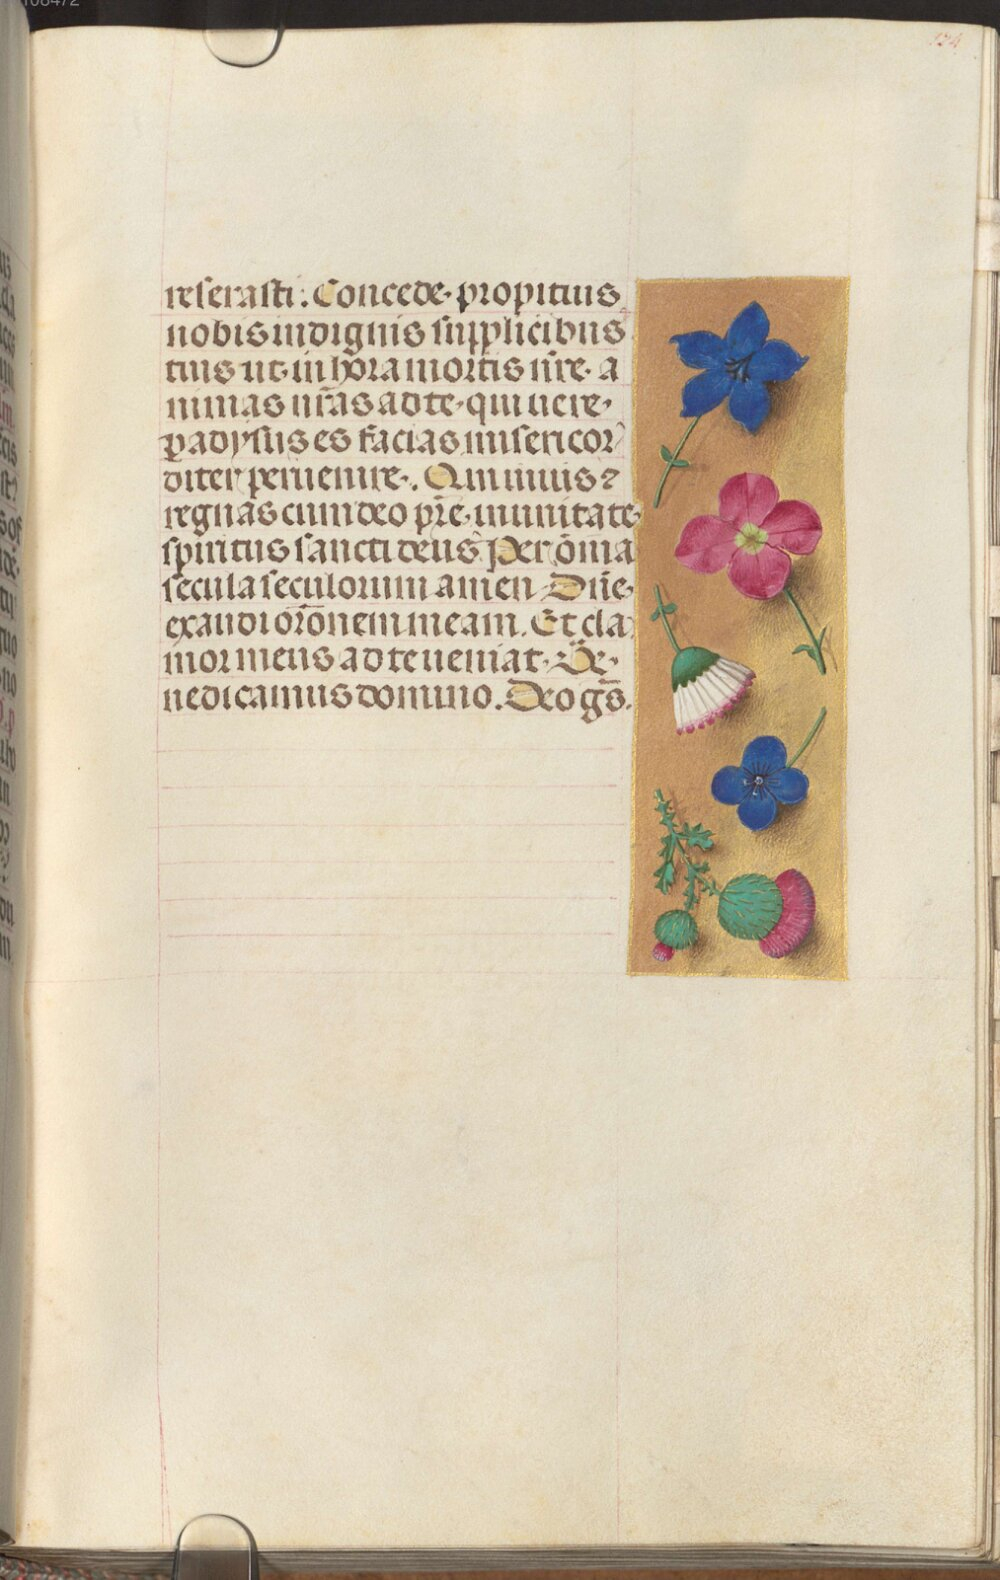 124
reserasti: Concede· propitius
nobis indignis supplicibus
tuis ut in hora mortis nr̄e· a
nimas nr̄as ad te· qui uere·
ꝑadysus es facias misericor
diter peruenire·. Qui uiuis ⁊
regnas cum deo pr̄e· in unitate
spiritus sancti deus Per om̄ia
secula seculorum amen Dn̄e·
exaudi or̄onem meam. Et cla
mor meus ad te ueniat· Be·
nedicamus domino. Deo gr̄s.